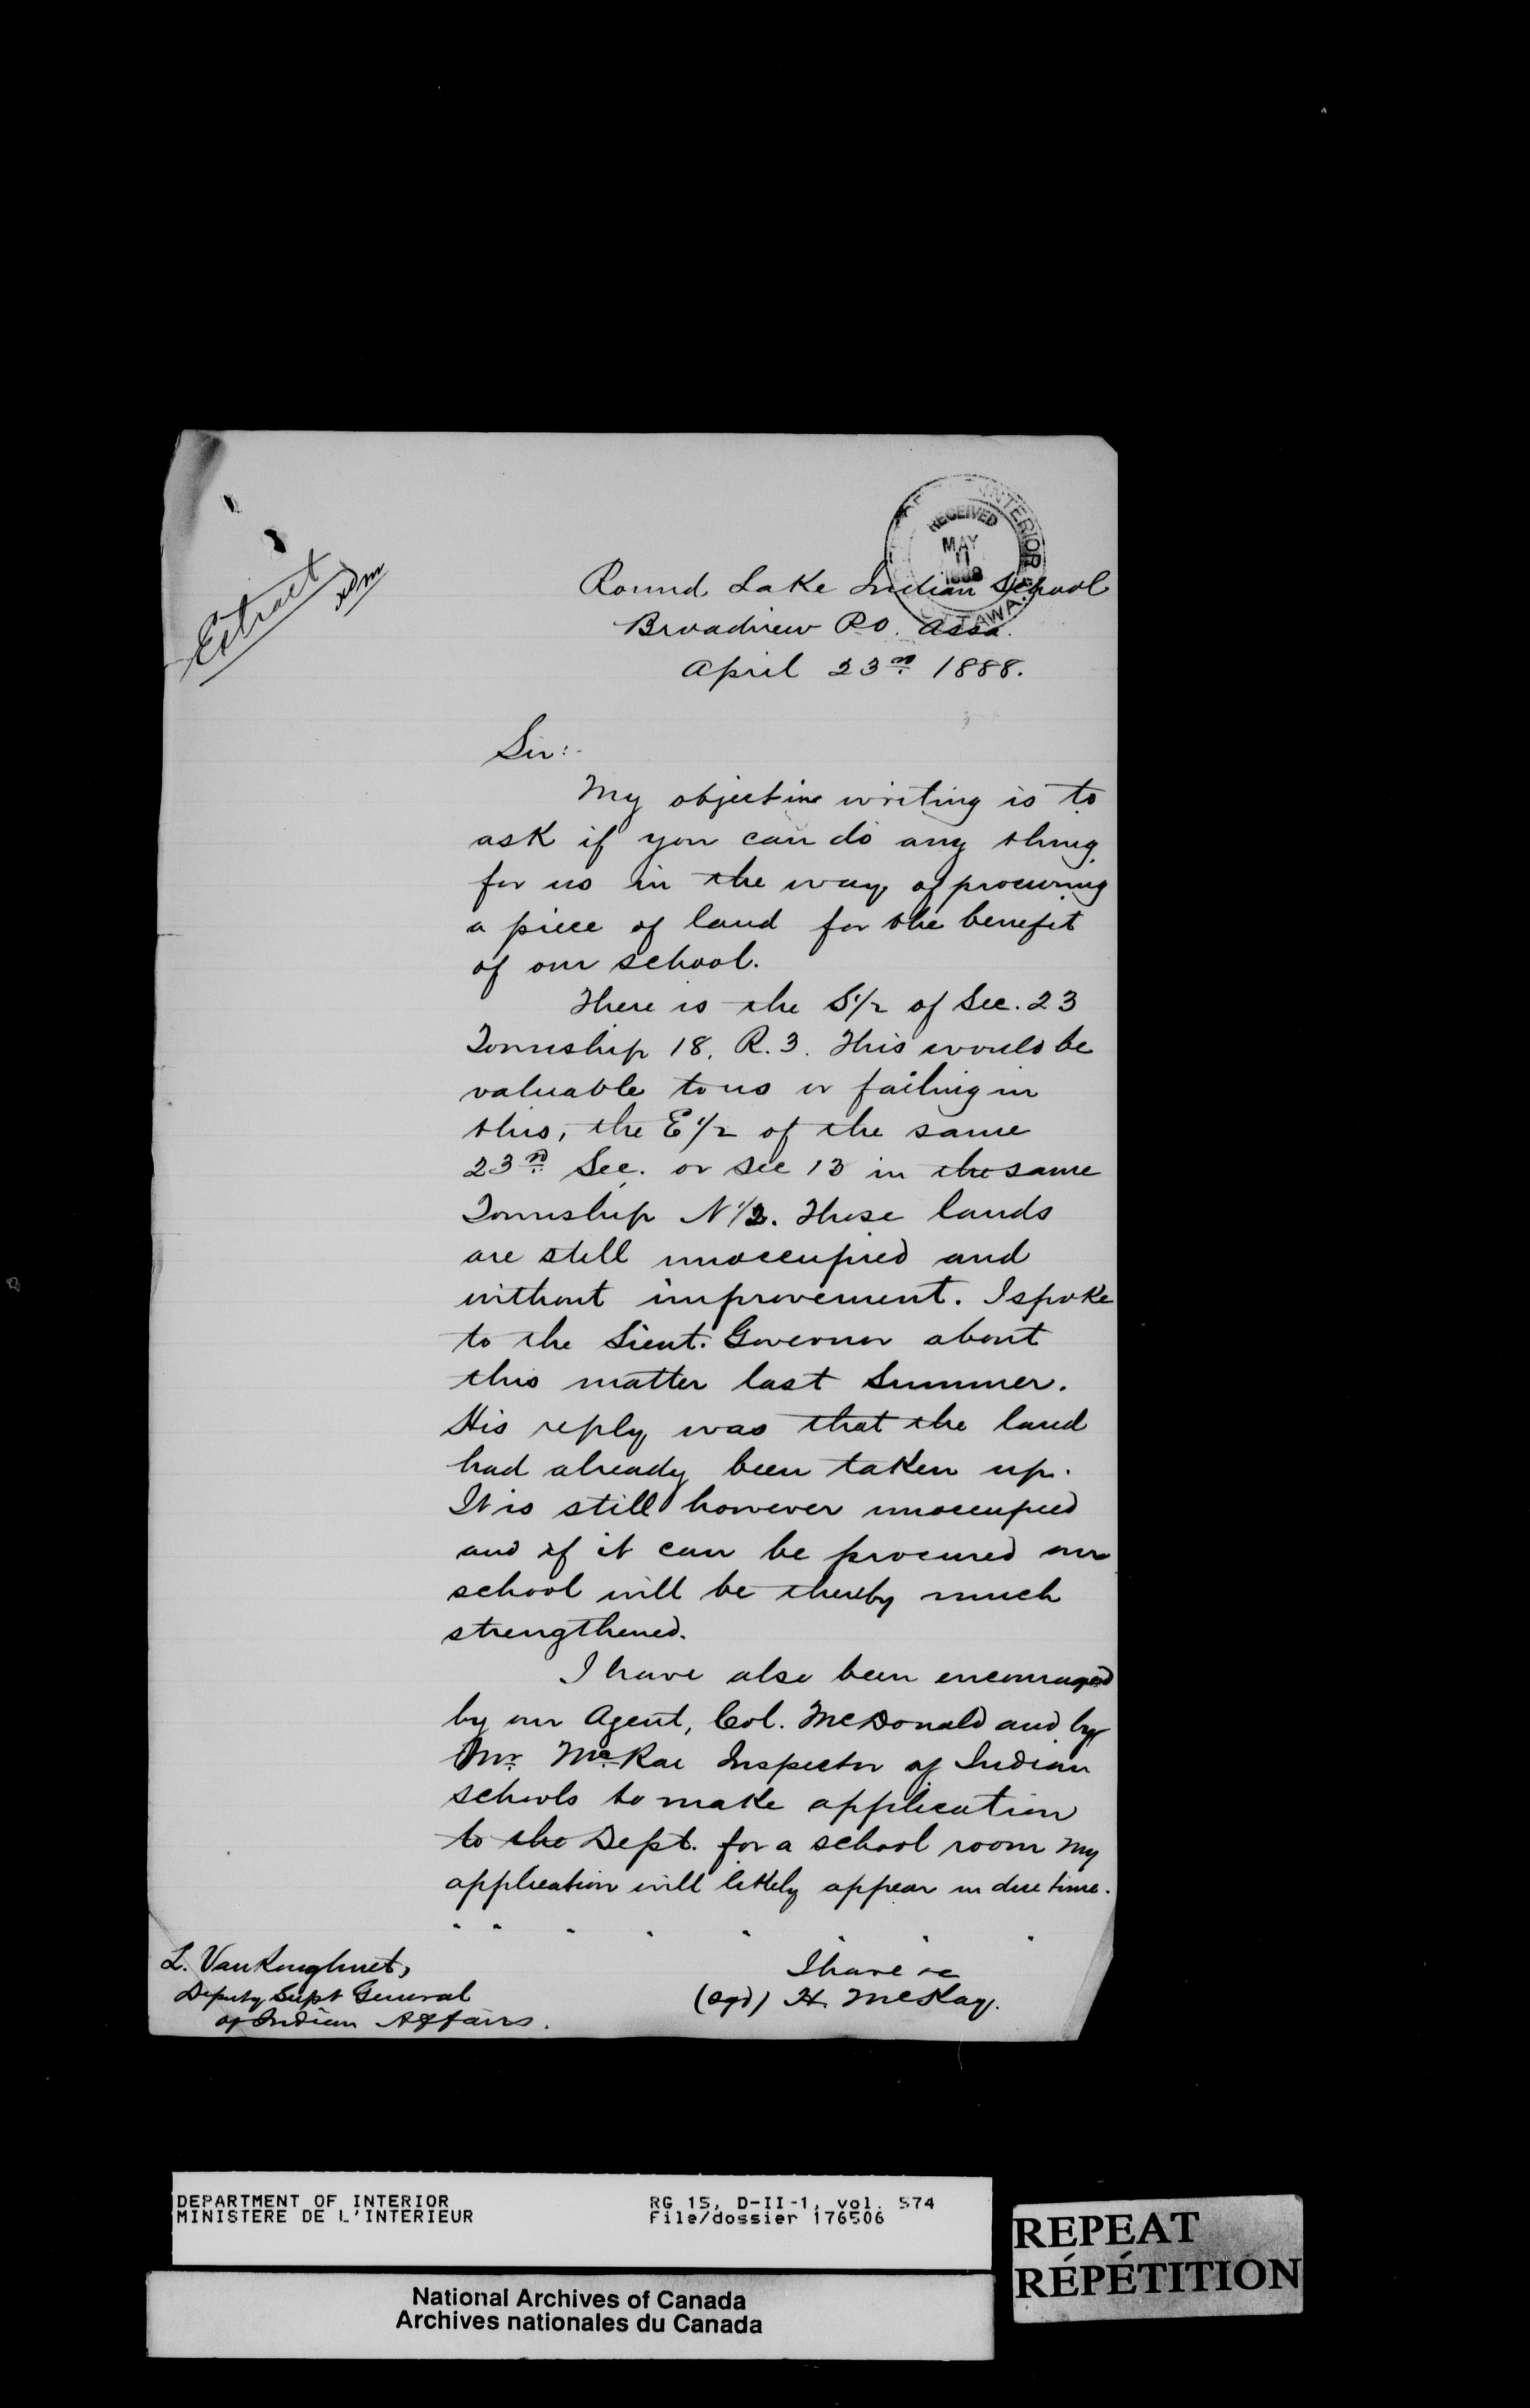 Extract
RECEIVED
MAY
11
1888
INTERIOR
OTTAWA
Round Lake Indian School
Broadview P.O. Assa.
April 23rd 1888.
Sir:-
My object in writing is to
ask if you can do any thing
for us in the way of procuring
a piece of land for the benefit
of our school.
There is the S1/2 of Sec. 23
Township 18, R. 3. This would be
valuable to us or failing in
this, the E1/2 of the same
23rd Sec. or Sec 13 in the same
Township N1/2. These lands
are still unoccupied and
without improvement. I spoke
to the Lieut. Governor about
this matter last Summer.
His reply was that the land
had already been taken up.
It is still however unoccupied
and if it can be procured our
school will be thereby much
strengthened.
I have also been encouraged
by our Agent, Col. McDonald and by
Mr. McRae Inspector of Indian
schools to make application
to the Dept. for a school room My
application will likely appear in due time.
" " " " " " " "
L. Vankoughnet,
Deputy Supt General
of Indian Affairs.
I have &c
(sgd) H. McKay.
DEPARTMENT OF INTERIOR
MINISTERE DE L'INTERIEUR
RG 15, D-II-1, vol. 574
File/dossier 176506
REPEAT
RÉPÉTITION
National Archives of Canada
Archives nationales du Canada